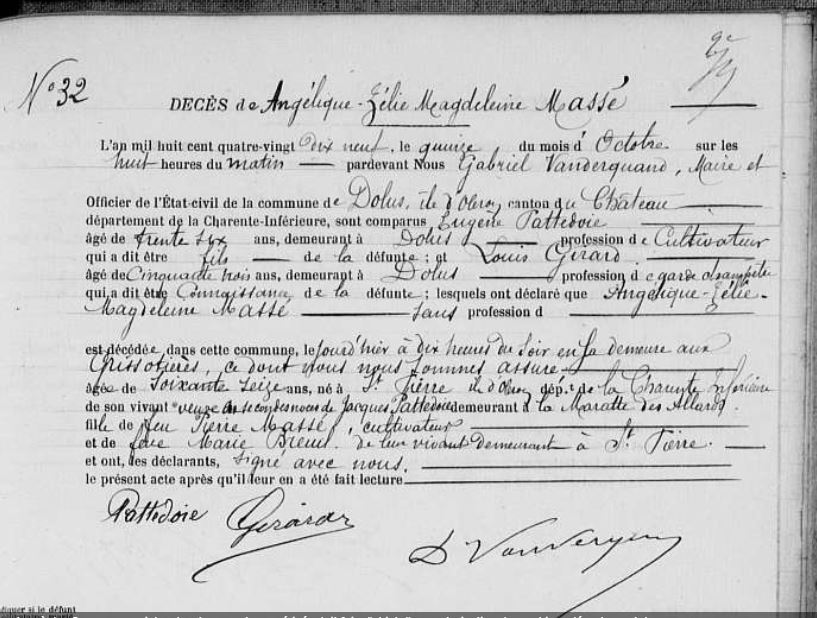 N° 32
DECÈS de Angélique-Zélie Magdeleine Massé
L'an mil huit cent quatre-vingt dix neuf, le quinze du mois d' Octobre sur les
huit heures du matin — pardevant Nous Gabriel Vanderquand, Maire et
Officier de l'État-civil de la commune de Dolus, île d'oleron canton du Château
département de la Charente-Inférieure, sont comparus Eugène Pattedoie
âgé de trente six ans, demeurant à Dolus — profession de Cultivateur
qui a dit être fils — de la défunte ; et Louis Girard —
âgé de Cinquante trois ans, demeurant à Dolus — profession de garde champêtre
qui a dit être Connaissance de la défunte ; lesquels ont déclaré que Angélique-Zélie-
Magdeleine Massé — sans profession d —
est décédée dans cette commune, le jourd'hier à dix heures du soir en sa demeure aux
ce dont nous nous sommes assuré —
âgée de soixante seize ans, né à St Pierre île d'oleron dép.t de la Charente Inférieure
de son vivant veuve en secondes noces de Jacques Pattedoie demeurant à la des Allards.
fille de feu Pierre Massé, cultivateur —
et de feue Marie de leur vivant demeurant à St Pierre. —
et ont, les déclarants, signé avec nous. —
le présent acte après qu'il leur en a été fait lecture —
Pattedoie Girard
diquer si le défunt